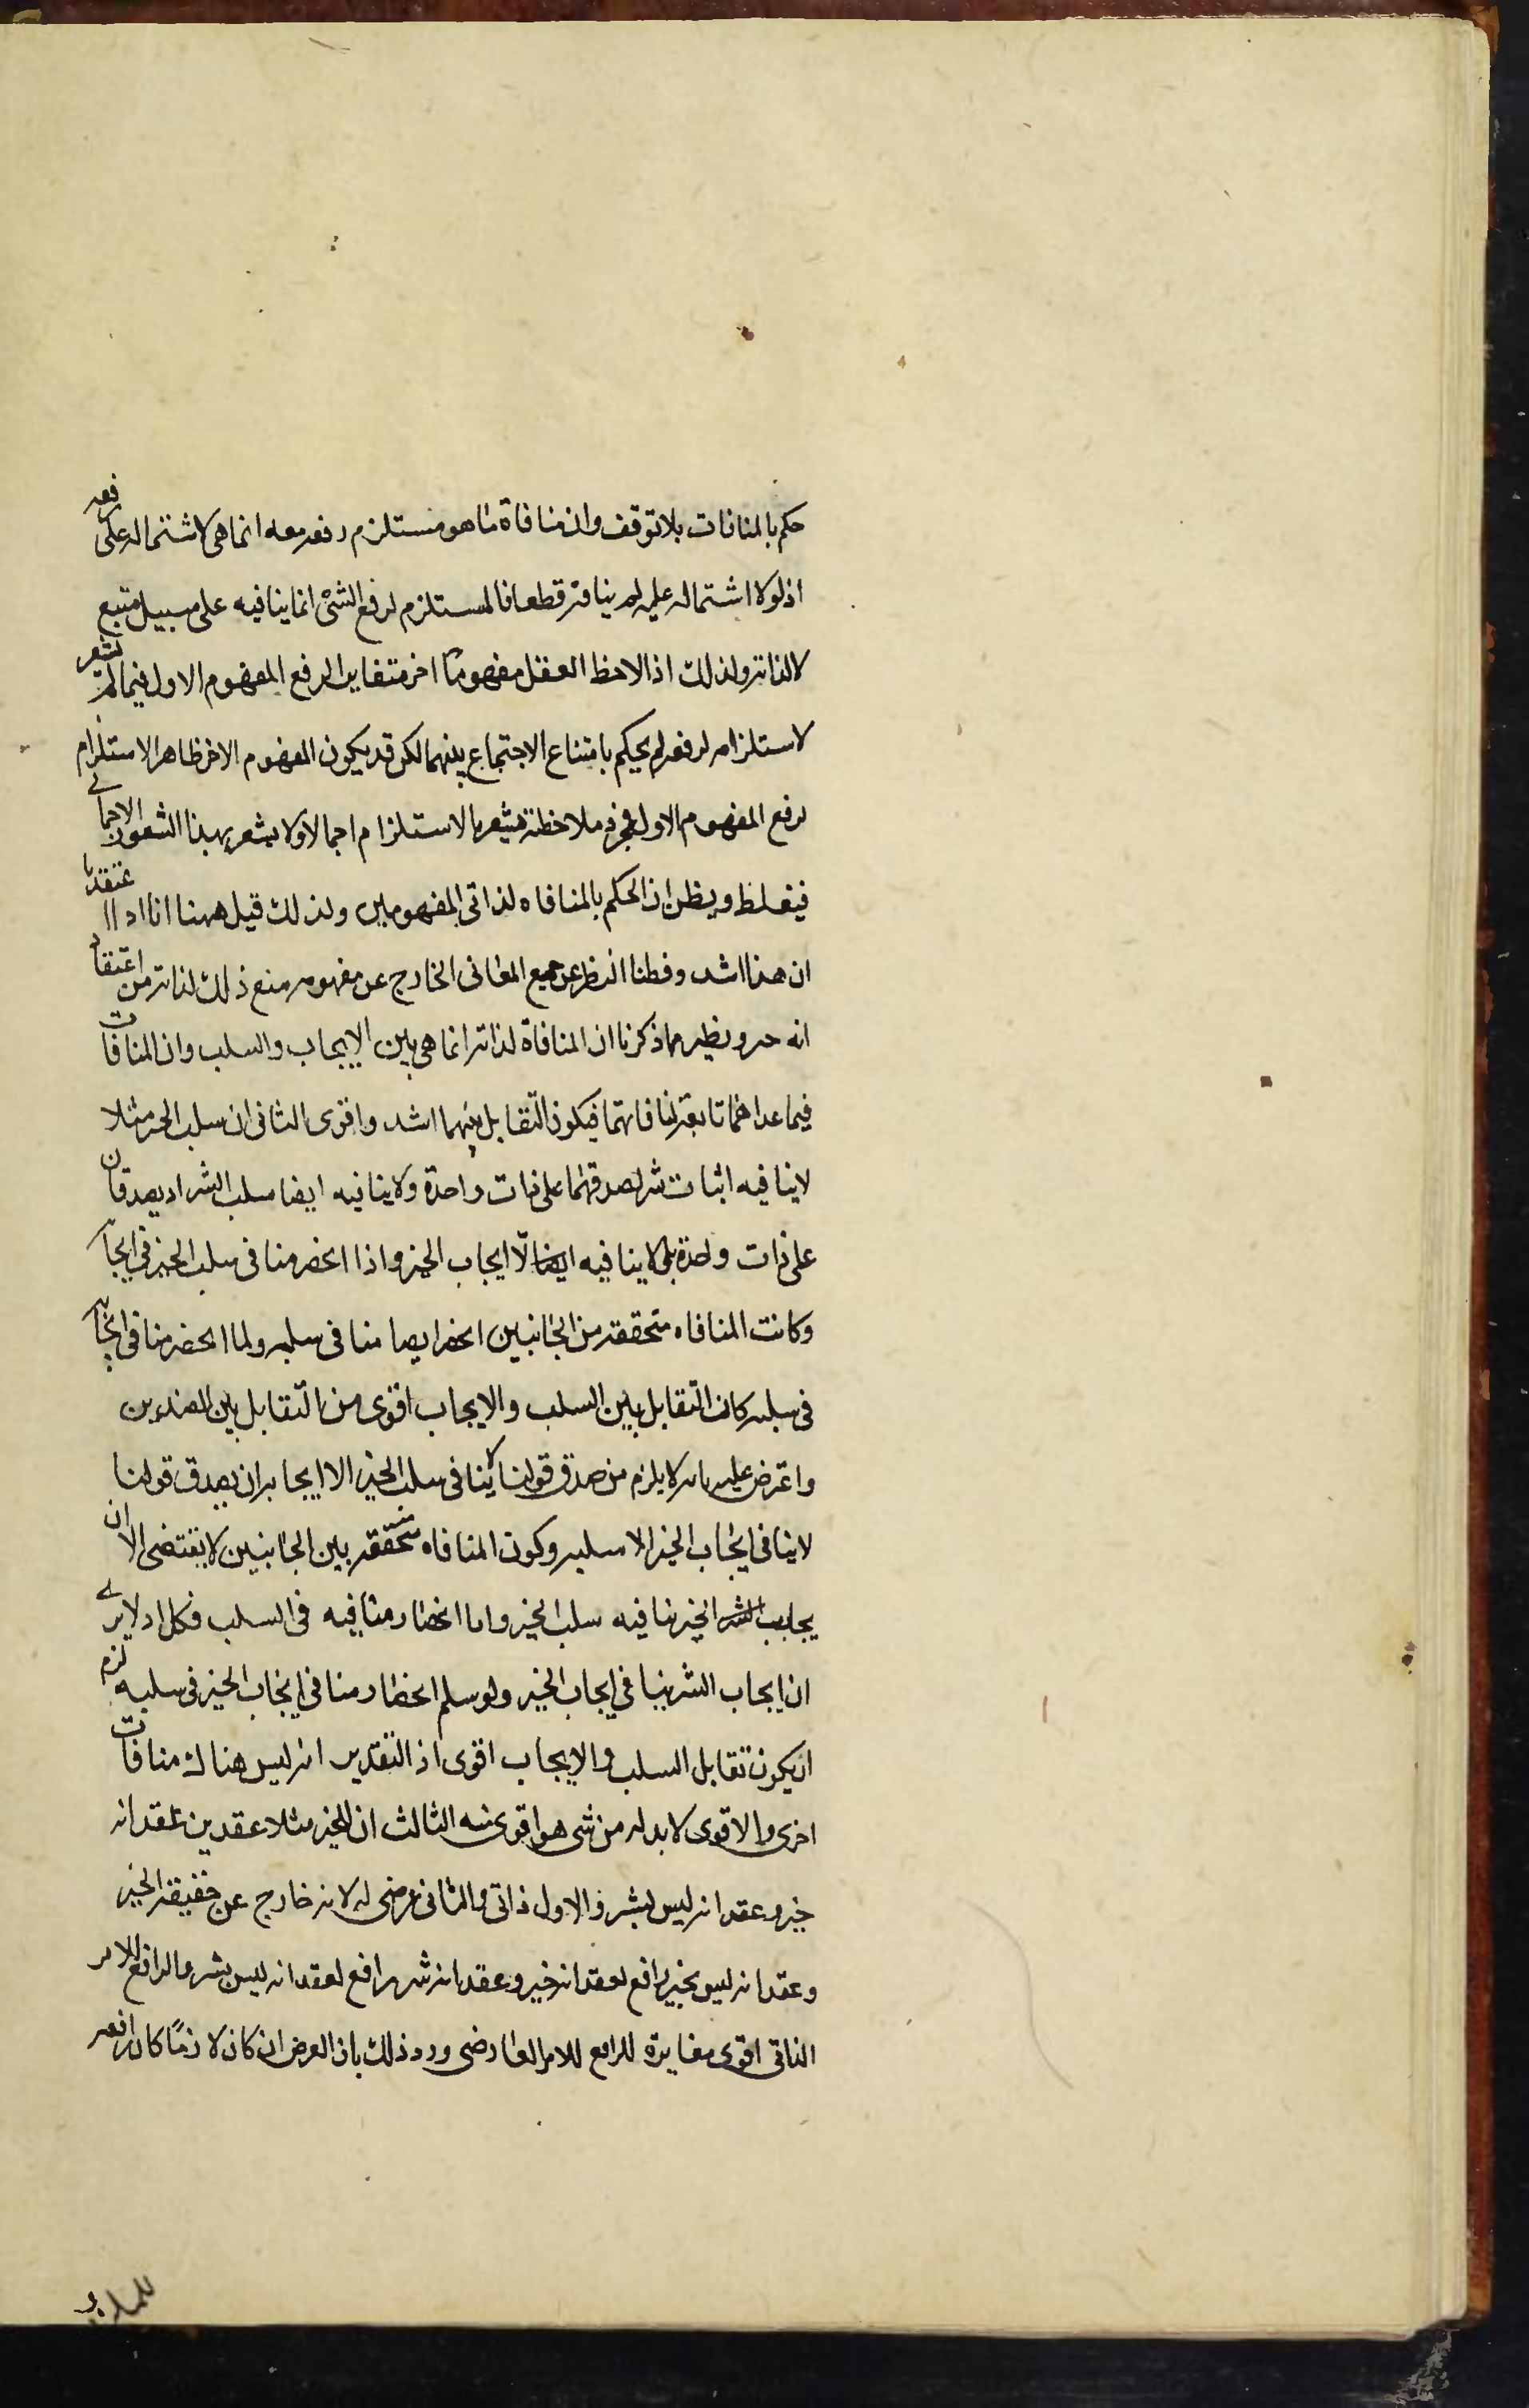 حكم بالمنافات بلا توقف وان منافاة ما هو مستلزم رفعه معه انما هي لاشتماله على رفعه
اذ لولا اشتماله عليه لم ينافه قطعا فالمستلزم لرفع الشئ انما ينافيه على سبيل متبع
لالذاته ولذلك اذا لاحظ العقل مفهوما اخر متغاير الرفع المفهوم الاول فيما لم يشعر
لاستلزامه لرفعه لم يحكم بامتناع الاجتماع بينهما لكن قد يكون المفهوم الاخر ظاهر الاستلزام
لرفع المفهوم الاول فبمجرد ملاحظته يشعر بالاستلزام اجمالا ولا يشعر بهذا الشعور الاجمالي
فيغلط ويظن ان الحكم بالمنافاه لذاتي المفهومين ولذلك قيل ههنا انا اذا اعتقدنا
ان هذا اشد وقطنا النظر عن جميع المعاني الخارج عن مفهومه منع ذلك لذاته من اعتقاد
انه حد ويظهر مما ذكرنا ان المنافاة لذاته انما هي بين الايجاب والسلب وان المنافات
فيما عداهما تابعة لمنافاتهما فيكون التقابل بينهما اشد واقوى الثاني ان سلب الخير مثلا
لا ينافيه اثبات شر لصدقهما على ذات واحدة ولا ينافيه ايضا سلب الشر اذ يصدقان
على ذات واحدة بل لا ينافيه ايضا الا ايجاب الخير واذا انحصر منافي سلب الخير في ايجابه
وكانت المنافاه متحققة من الجانبين انحصر ايضا منافي سلبه ولما انحصر منافي ايجابه
في سلبه كان التقابل بين السلب والايجاب اقوى من التقابل بين الضدين
واعترض عليه بانه لا يلزم من صدق قولنا لا ينافي سلب الخير الا ايجابه ان يصدق قولنا
لا ينافي ايجاب الخير الا سلبه وكون المنافاه متحققة بين الجانبين لا يقتضي الا ان
يجاب الشر الخير ينافيه سلب الخير واما انحصار منافيه في السلب فكلا اذ لا يرى
ان ايجاب الشر ينافي ايجاب الخير ولو سلم انحصار منافي ايجاب الخير في سلبه لزم
ان يكون تقابل السلب والايجاب اقوى اذ التقدير انه ليس هناك منافات
اخرى والاقوى لا بد له من شى هو اقوى منه الثالث ان للخير مثلا عقدين عقد انه
خير وعقد انه ليس بشر والاول ذاتي والثاني عرضي له لانه خارج عن حقيقة الخير
وعقد انه ليس بخير رافع لعقد انه خير وعقد انه شر رافع لعقد انه ليس بشر والرافع للامر
الذاتي اقوى مغايرة للرافع للامر العارضي ورد ذلك بان العرض ان كان لازما كان رافعه